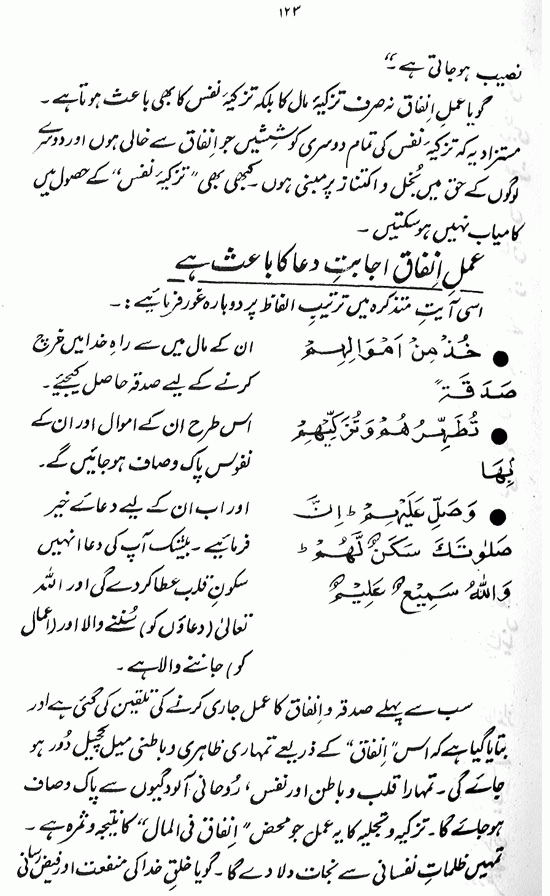 ۱۲۳
نصیب ہو جاتی ہے۔“
گویا عملِ اِنفاق نہ صرف تزکیۂ مال کا بلکہ تزکیۂ نفس کا بھی باعث ہوتا ہے۔
مستزاد یہ کہ تزکیۂ نفس کی تمام دوسری کوششیں جو اِنفاق سے خالی ہوں اور دوسرے
لوگوں کے حق میں بُخل و اکتناز پر مبنی ہوں۔ کبھی بھی ”تزکیۂ نفس“ کے حصول میں
کامیاب نہیں ہو سکتیں۔
عملِ اِنفاق اجابتِ دعا کا باعث ہے
اسی آیتِ متذکرہ میں ترتیبِ الفاظ پر دوبارہ غور فرمائیے:۔
● خُذْ مِنْ اَمْوَالِهِمْ
صَدَقَةً
ان کے مال میں سے راہِ خدا میں خرچ
کرنے کے لیے صدقہ حاصل کیجیئے۔
● تُطَهِّرُهُمْ وَتُزَكِّيْهِمْ
بِهَا
اس طرح ان کے اموال اور ان کے
نفوس پاک و صاف ہو جائیں گے۔
● وَصَلِّ عَلَيْهِمْ ؕ اِنَّ
صَلٰوتَكَ سَكَنٌ لَّهُمْ ؕ
وَاللّٰهُ سَمِيْعٌ عَلِيْمٌ
اور اب ان کے لیے دعائے خیر
فرمائیے۔ بیشک آپ کی دعا انہیں
سکونِ قلب عطا کر دے گی اور اللہ
تعالیٰ (دعاؤں کو) سُننے والا اور (اعمال
کو) جاننے والا ہے۔
سب سے پہلے صدقہ و اِنفاق کا عمل جاری کرنے کی تلقین کی گئی ہے اور
بتایا گیا ہے کہ اس ”اِنفاق“ کے ذریعے تمہاری ظاہری و باطنی میل کچیل دُور ہو
جائے گی۔ تمہارا قلب و باطن اور نفس، رُوحانی آلودگیوں سے پاک و صاف
ہو جائے گا۔ تزکیہ و تجلیہ کا یہ عمل جو محض ”اِنفاق فی المال“ کا نتیجہ و ثمرہ ہے۔
تمہیں ظلماتِ نفسانی سے نجات دلا دے گا۔ گویا خلقِ خدا کی منفعت اور فیض رسانی